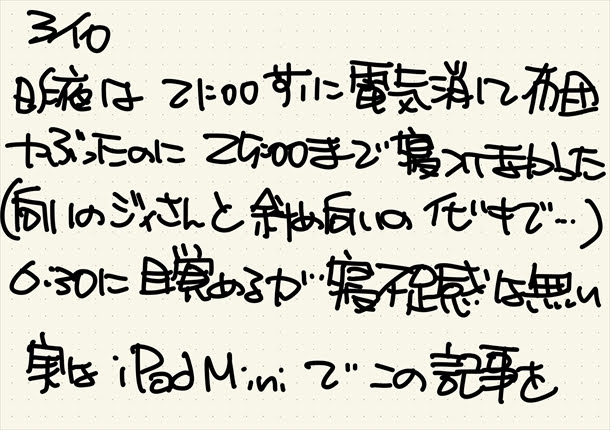 3/10
昨夜は 21:00すぎに電気消して布団
かぶったのに 25:00まで寝つてまわらた
(向いのジィさんと斜め向いのイビキで…)
6:30に目覚めるが…寝不足感は無い
実は iPad Mini でこの記事を